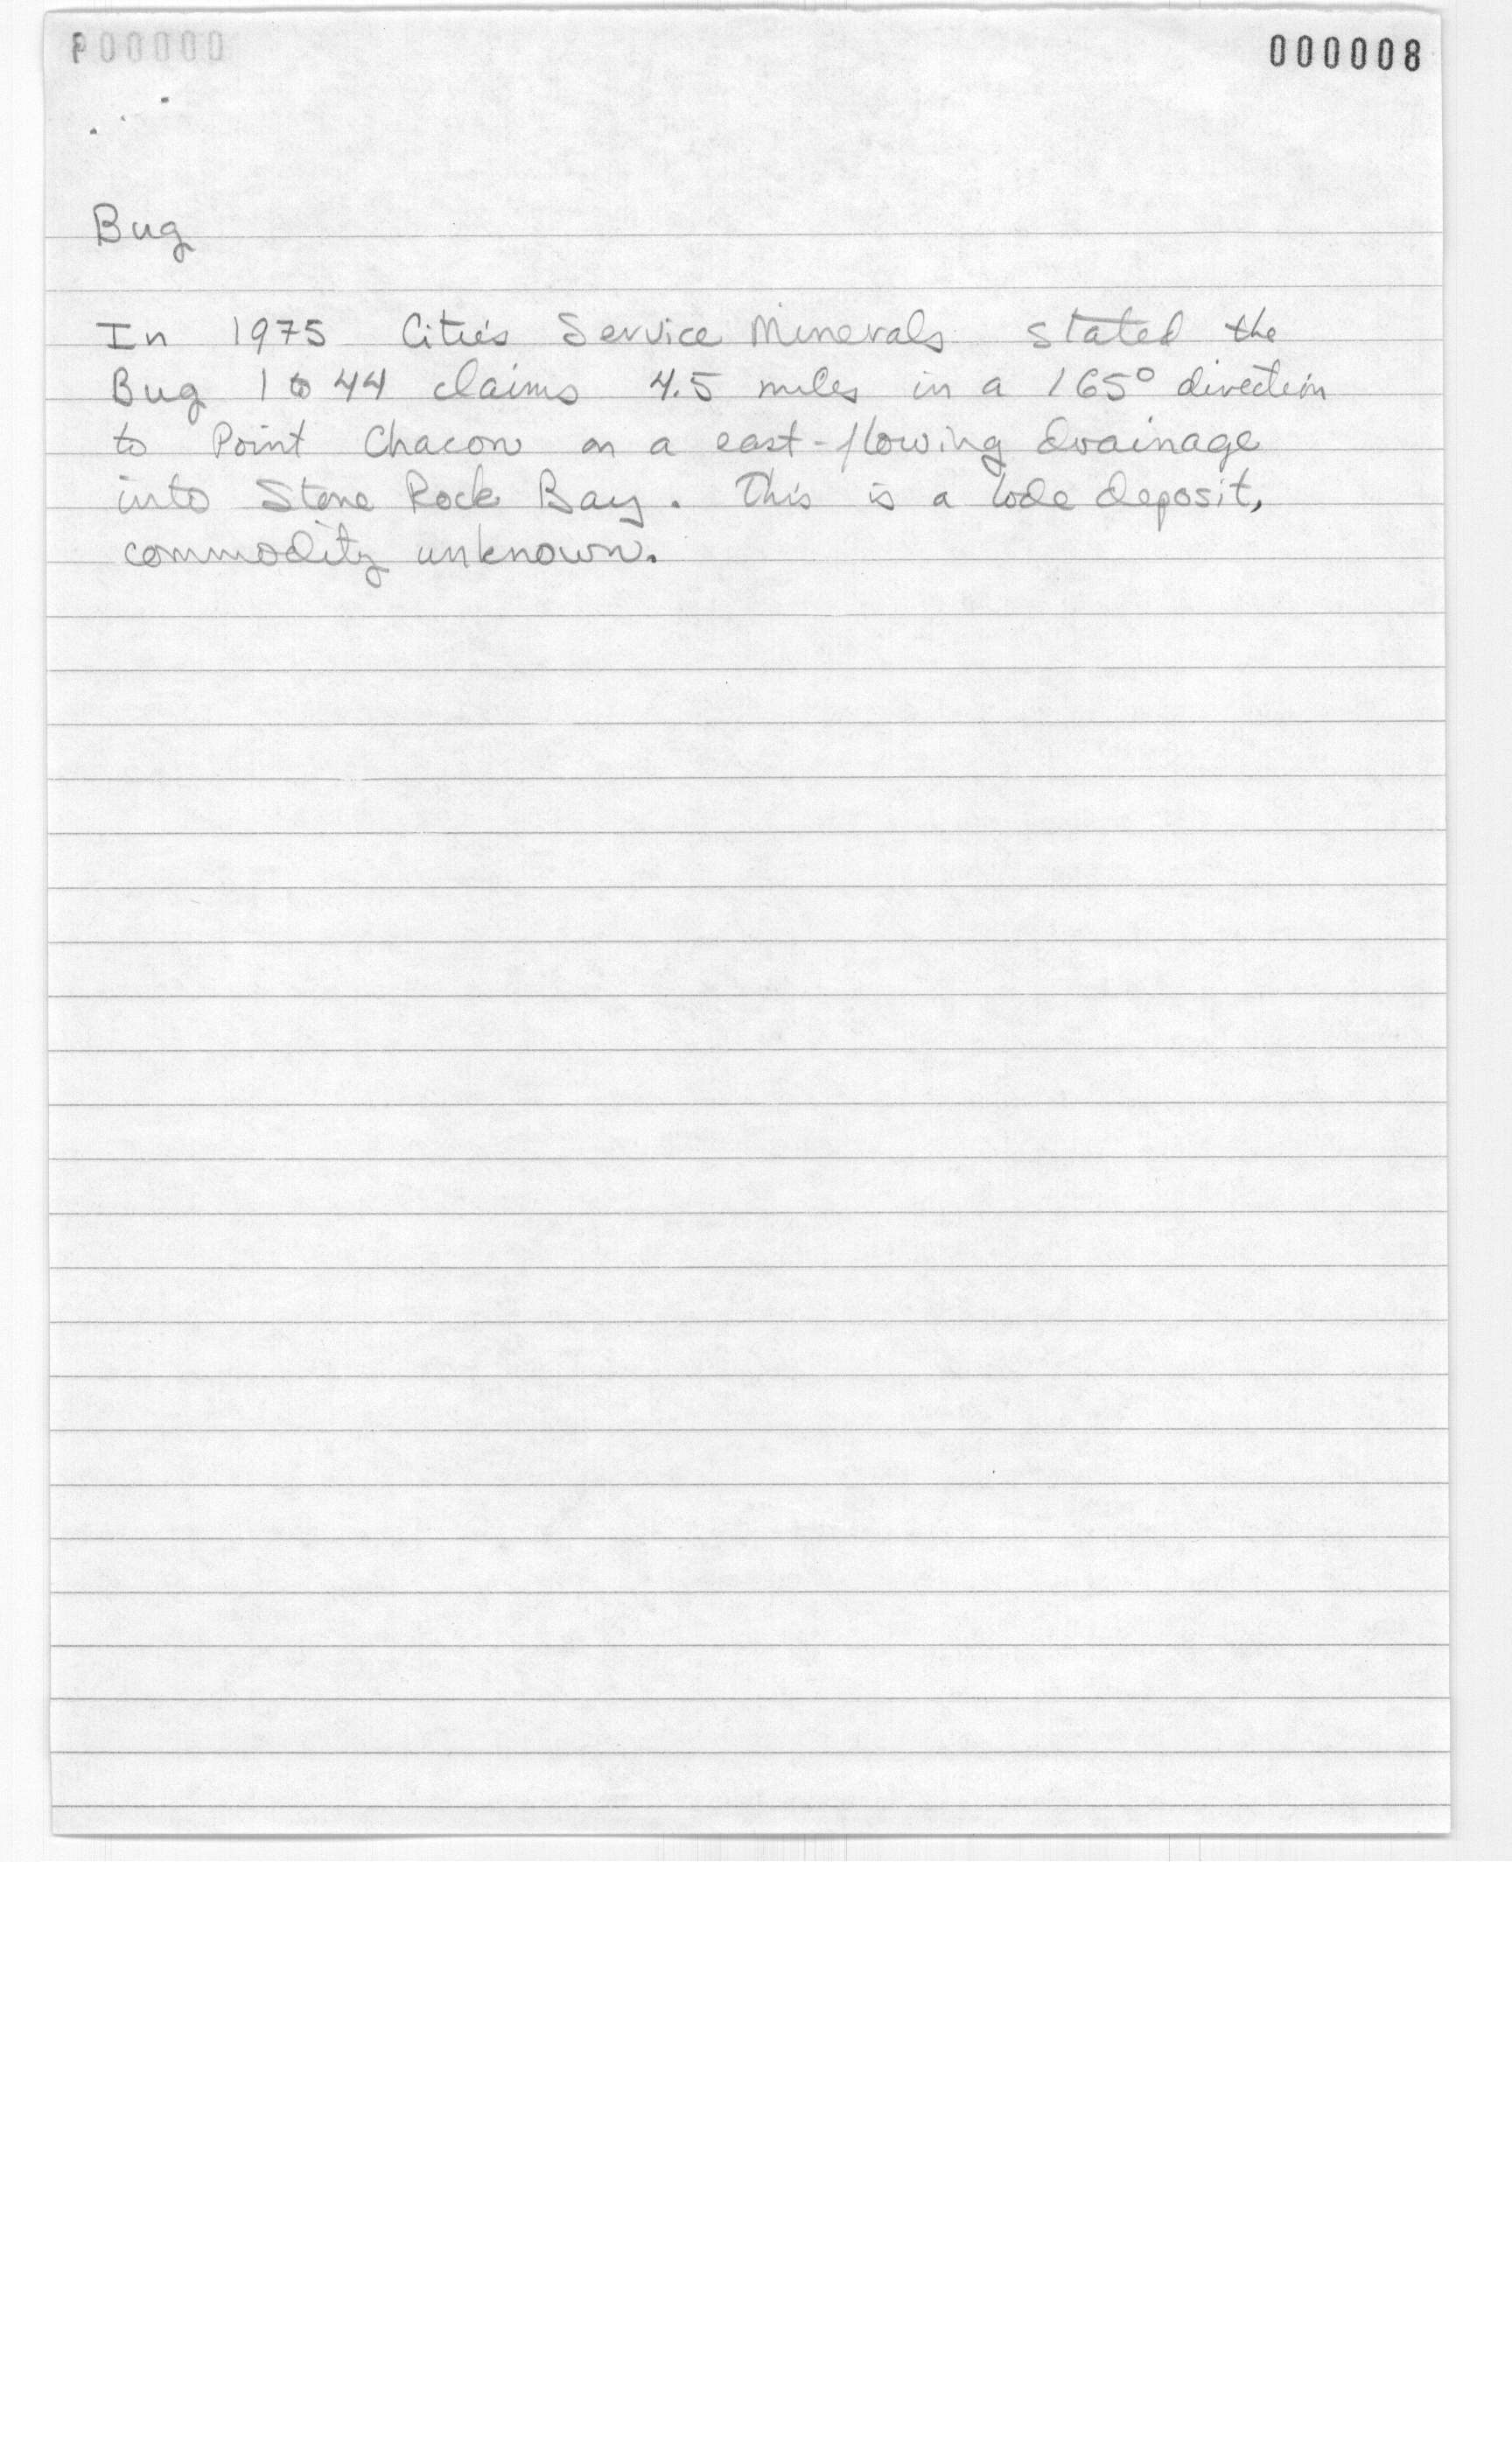 000008
Bug
In 1975 Cities Service Minerals stated the
Bug 1 to 44 claims 4.5 miles in a 165° direction
to Point Chacon on a east-flowing drainage
into Stone Rock Bay. This is a lode deposit,
commodity unknown.